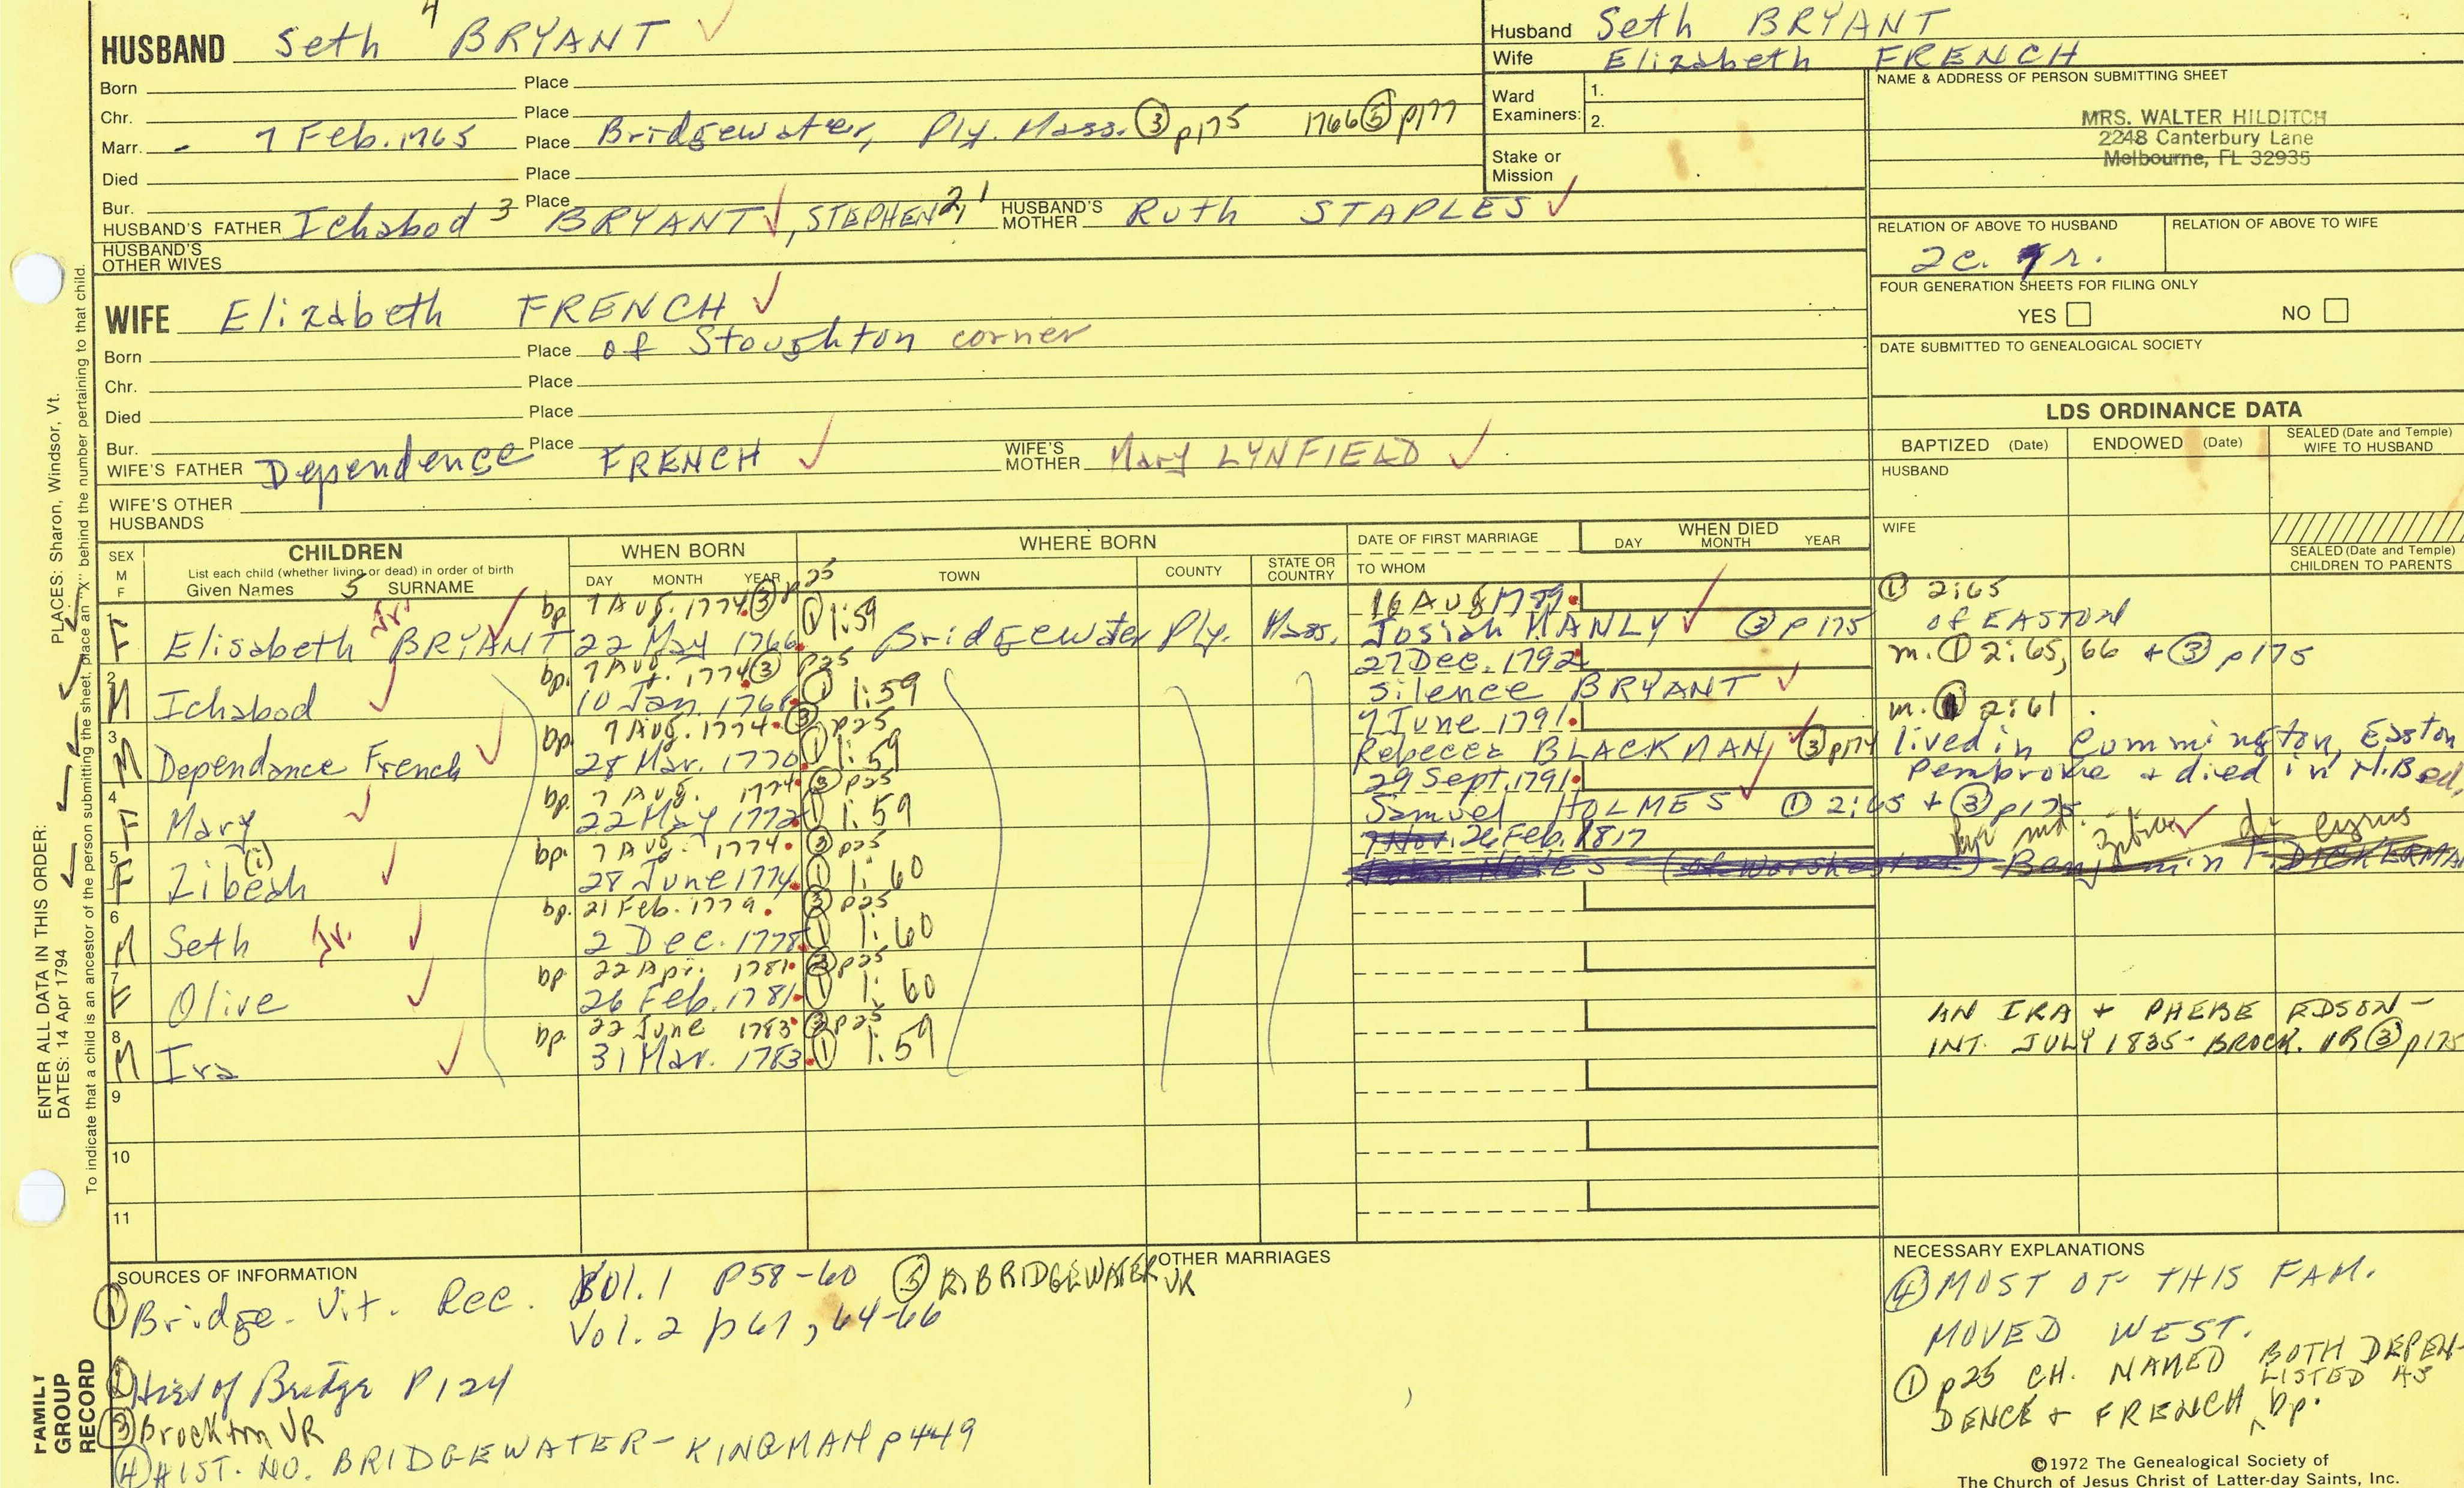 4
HUSBAND Seth BRYANT ✓
Born Place
Chr. Place
Marr. - 7 Feb. 1765 Place Bridgewater, Ply. Mass. ③ p175 1766 ⑤ p177
Died Place
Bur. Place
HUSBAND'S FATHER Ichabod 3 BRYANT ✓, STEPHEN 2, 1 HUSBAND'S MOTHER Ruth STAPLES ✓
HUSBAND'S OTHER WIVES
WIFE Elizabeth FRENCH ✓
Born Place of Stoughton corner
Chr. Place
Died Place
Bur. Place
WIFE'S FATHER Dependence FRENCH ✓ WIFE'S MOTHER Mary LYNFIELD ✓
WIFE'S OTHER HUSBANDS
Husband Seth BRYANT
Wife Elizabeth FRENCH
Ward Examiners: 1.
2.
Stake or Mission
NAME & ADDRESS OF PERSON SUBMITTING SHEET
MRS. WALTER HILDITCH
2248 Canterbury Lane
Melbourne, FL 32935
RELATION OF ABOVE TO HUSBAND RELATION OF ABOVE TO WIFE
2c. r.
FOUR GENERATION SHEETS FOR FILING ONLY
YES NO
DATE SUBMITTED TO GENEALOGICAL SOCIETY
LDS ORDINANCE DATA
BAPTIZED (Date) ENDOWED (Date) SEALED (Date and Temple) WIFE TO HUSBAND
HUSBAND
WIFE
SEALED (Date and Temple) CHILDREN TO PARENTS
SEX M F
CHILDREN
List each child (whether living or dead) in order of birth
Given Names 5 SURNAME
WHEN BORN
DAY MONTH YEAR
WHERE BORN
TOWN COUNTY STATE OR COUNTRY
DATE OF FIRST MARRIAGE
TO WHOM
WHEN DIED
DAY MONTH YEAR
1 bp. 7 Aug. 1774 ③ p25 16 Aug 1789 ① 2:65
F Elisabeth Jr. BRYANT ✓ 22 May 1766 ① 1:59 Bridgewater Ply. Mass. Josiah MANLY ✓ ③ p175 of EASTON
2 bp. 7 Aug. 1774 ③ p25 27 Dec. 1792 m. ① 2:65, 66 + ③ p175
M Ichabod ✓ 10 Jan. 1768 ① 1:59 Silence BRYANT ✓
3 bp. 7 Aug. 1774 ③ p25 9 June 1791 m. ① 2:61
M Dependance French ✓ 28 Mar. 1770 ① 1:59 Rebecca BLACKMAN ✓ ③ p174 lived in Cummington, Easton
4 bp. 7 Aug. 1774 ③ p25 29 Sept. 1791 Pembroke + died in N. Bed.
F Mary ✓ 22 May 1772 ① 1:59 Samuel HOLMES ✓ ① 2:65 + ③ p175
5 bp. 7 Aug. 1774 ③ p25 26 Feb. 1817 Zibiah ✓ d. cyrus
F Zibeah (i) ✓ 28 June 1774 ① 1:60 (of Worchester) Benjamin F. DICKERMAN
6 bp. 21 Feb. 1779 ③ p25
M Seth Jr. ✓ 2 Dec. 1778 ① 1:60
7 bp 22 Apr. 1781 ③ p25
F Olive ✓ 26 Feb. 1781 ① 1:60
8 bp. 22 June 1783 ③ p25 AN IRA + PHEBE EDSON -
M Ira ✓ 31 Mar. 1783 ① 1:59 INT. JULY 1835 - BROCK. VR ③ p175
9
10
11
SOURCES OF INFORMATION
① Bridge. Vit. Rec. Vol. 1 P58-60 ⑤ E. BRIDGEWATER VR
Vol. 2 p61, 64-66
② Hist of Bridge P124
③ Brockton VR
④ HIST. NO. BRIDGEWATER - KINGMAN p449
OTHER MARRIAGES
NECESSARY EXPLANATIONS
④ MOST OF THIS FAM.
MOVED WEST.
① p25 CH. NAMED BOTH DEPEN-
DENCE + FRENCH LISTED AS bp.
©1972 The Genealogical Society of
The Church of Jesus Christ of Latter-day Saints, Inc.
ENTER ALL DATA IN THIS ORDER:
DATES: 14 Apr 1794 PLACES: Sharon, Windsor, Vt.
To indicate that a child is an ancestor of the person submitting the sheet, place an "X" behind the number pertaining to that child.
FAMILY
GROUP
RECORD